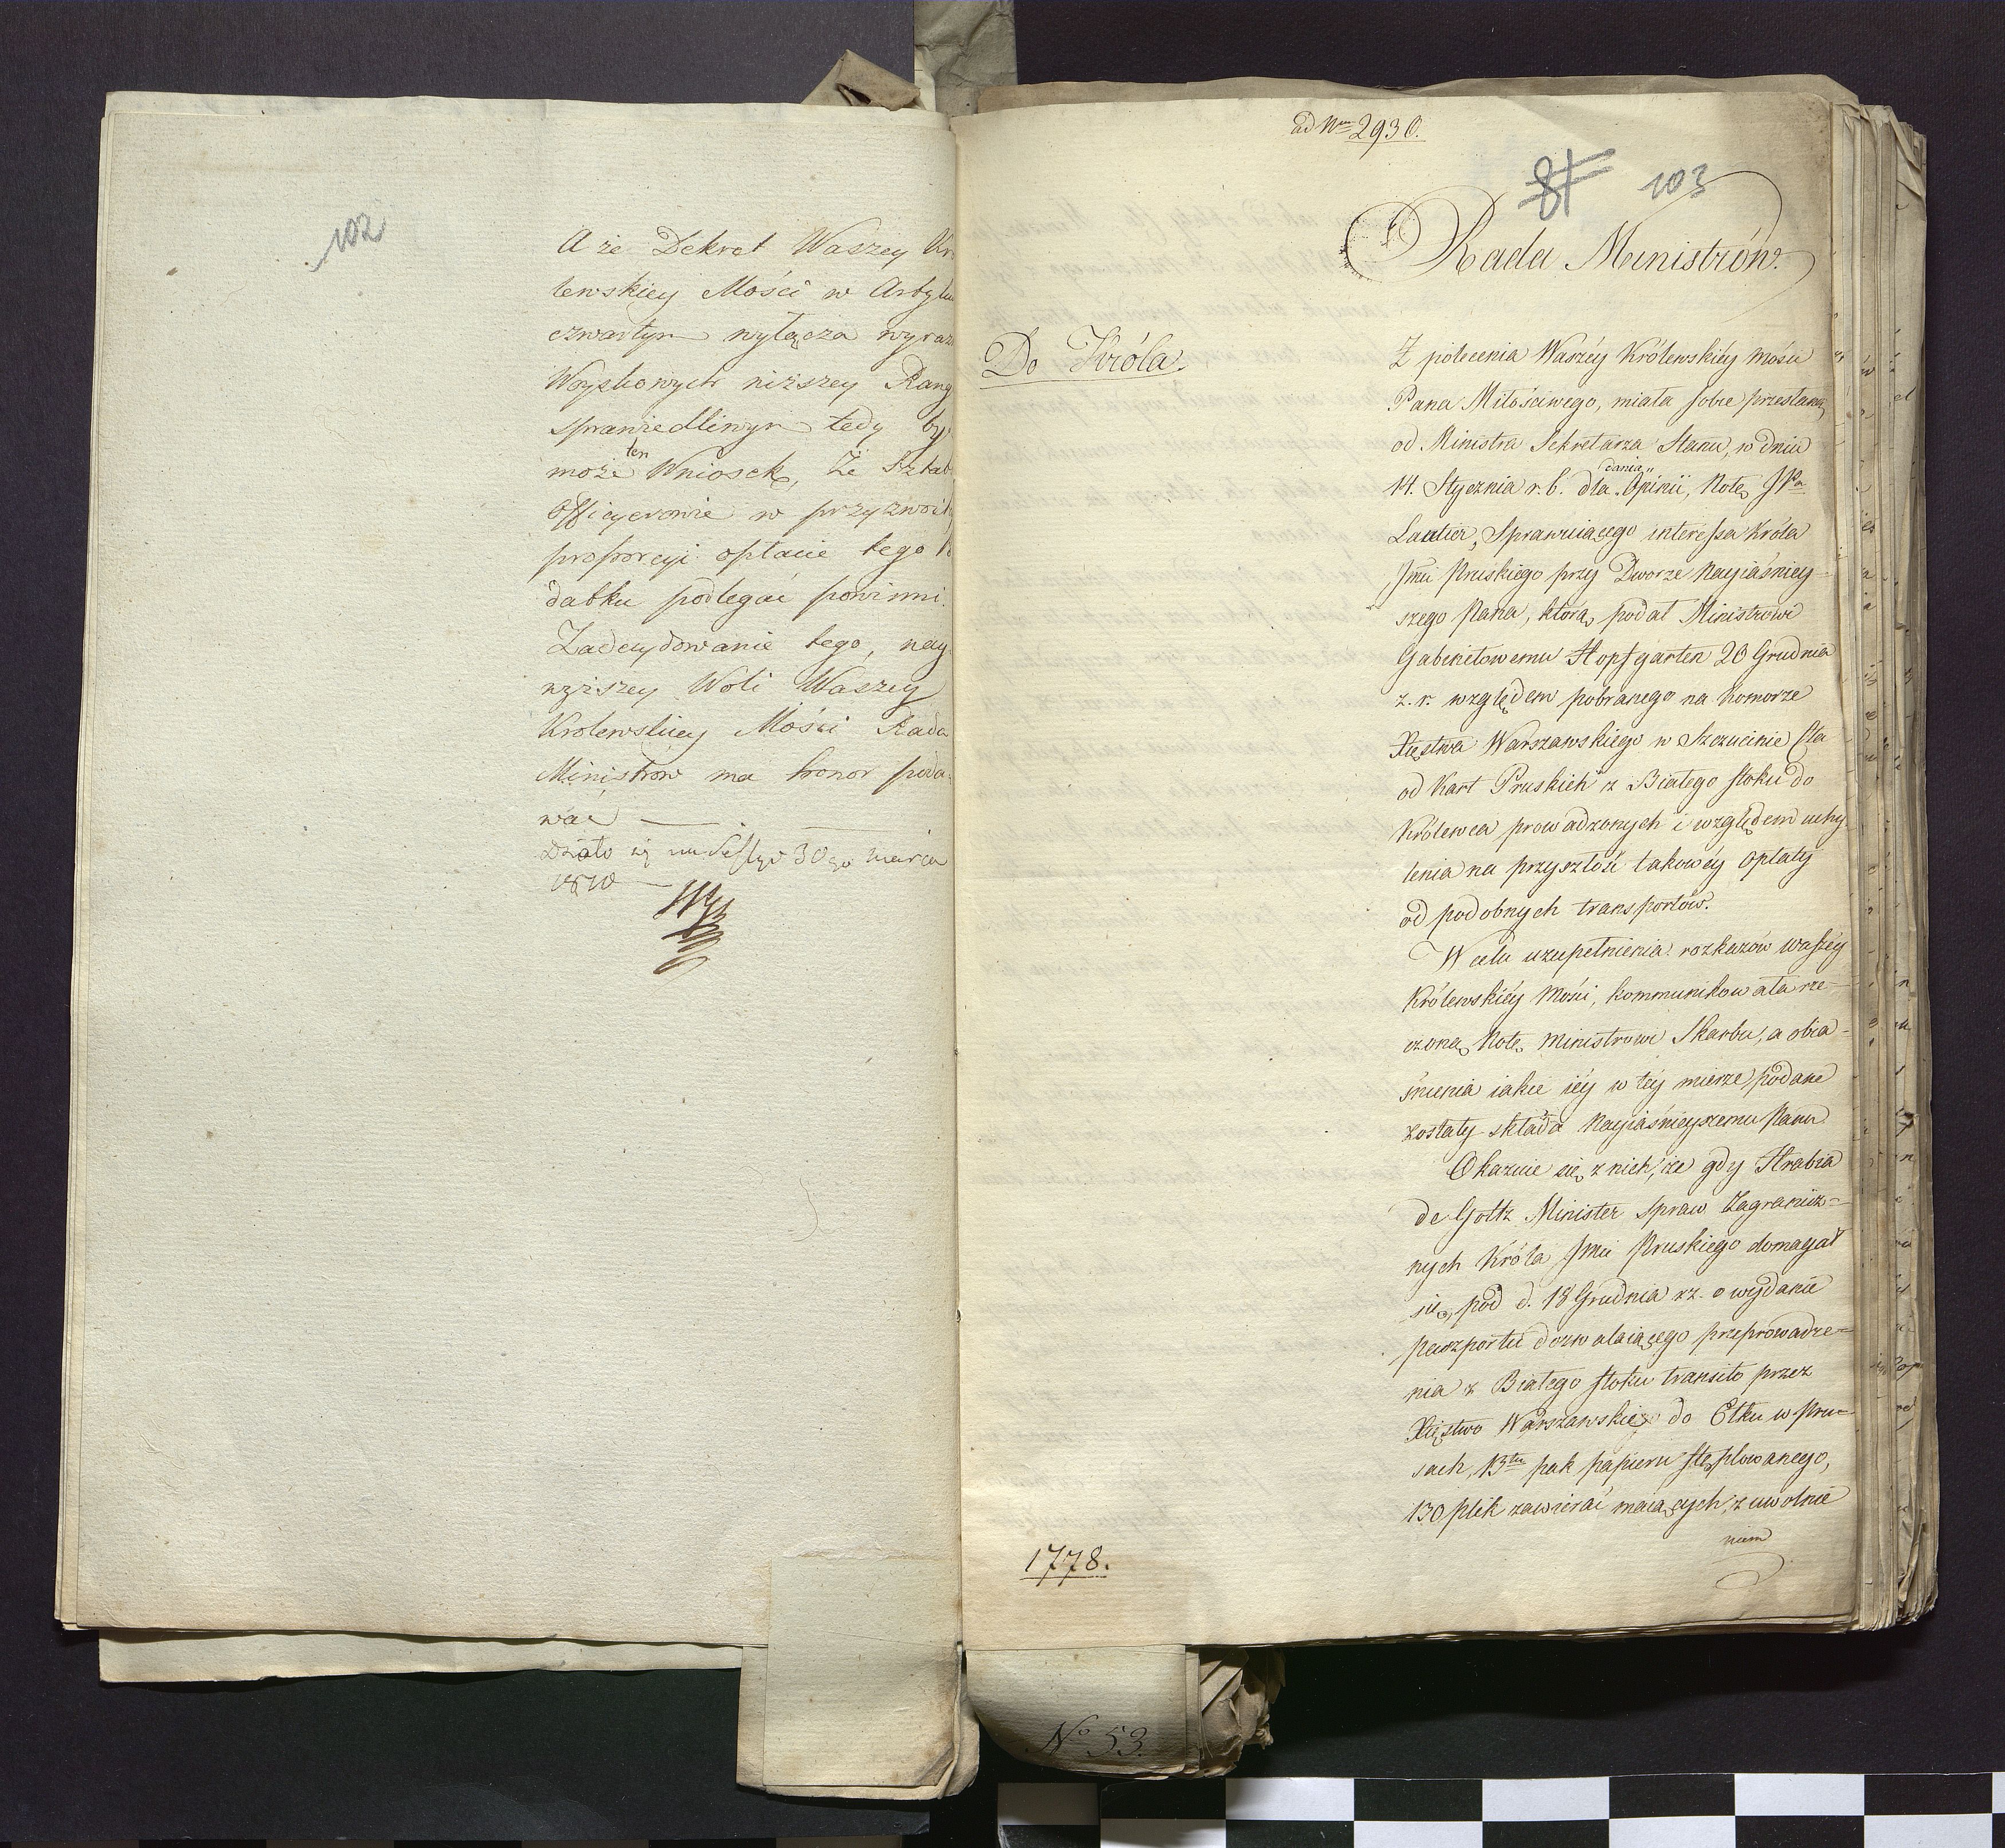 102
A że Dekret Waszey Kr
lewskiey Mości w Artyku
czwartym wyłącza wyraz
Woyskowych niższey Rang
sprawiedliwym tedy by
może ten Wniosek, Że Sztab
Officyerowie w przyzwoit
proporcyi opłacie tego
datku podlegać powinni.
Zadecydowanie tego, nay
wyższey Woli Waszey
Krolewskiey Mości Rada
Ministrow ma honor poda-
wać
Działo się na Sessyi 30go Marca
1810
ad Num 2930.
87 103
Rada Ministrów.
Do Króla.
Z polecenia Waszéy Królewskiéy Mości
Pana Miłościwego, miała sobie przesłaną
od Ministra Sekretarza Stanu, w dniu
14. Stycznia r. b. dla dania Opinii, Notę JPa
Lautier, Sprawuiącego interessa Króla
Jmci Pruskiego przy Dworze Nayiaśniey-
szego Pana, którą podał Ministrowi
Gabinetowemu Hopfgarten 20 Grudnia
z. r. względem pobranego na Komorze
Xięstwa Warszawskiego w Szczucinie Cła
od Kart Pruskich z Białego stoku do
Królewca prowadzonych i względem uchy-
lenia na przyszłość takowéy opłaty
od podobnych transportów.
W celu uzupełnienia rozkazów waszéy
Królewskiéy Mości, kommunikowała rze-
czoną Notę Ministrowi Skarbu, a obia-
śnienia iakie iéy w téy mierze podane
zostały składa Nayiaśnieyszemu Panu
Okazuie się z nich, że gdy Hrabia
de Goltz Minister Spraw Zagranicz-
nych Króla Jmci Pruskiego domagał
się, pod d. 18 Grudnia r z. o wydanie
paszportu dozwalaiącego przeprowadze-
nia z Białego stoku transito przez
Xięstwo Warszawskie do Ełku w Pru-
sach, 13tu pak papieru stęplowanego,
130 plik zawierać maiących, z uwolnie
niem
1778.
No 53.